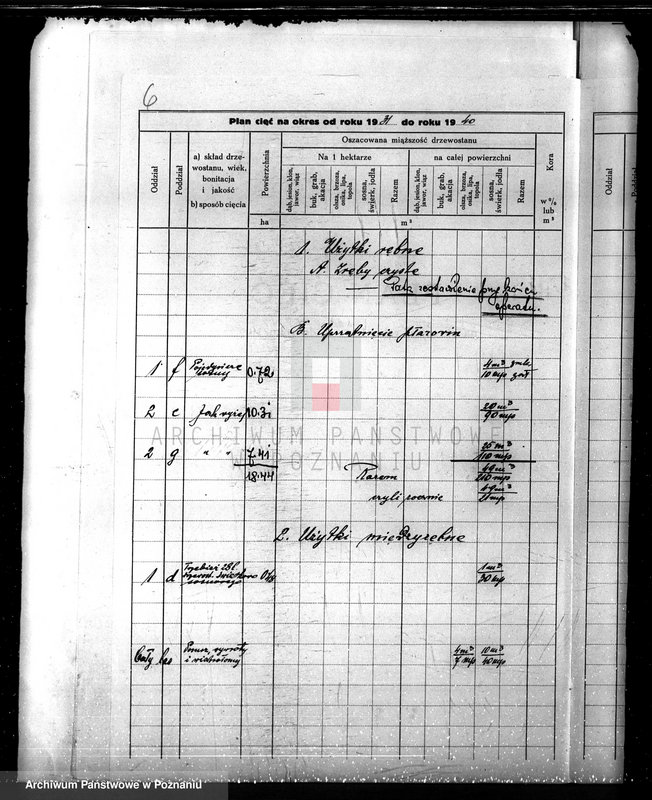 6
Plan cięć na okres od roku 1931 do roku 1940
Oddział
Poddział
a) skład drze-
wostanu, wiek,
bonitacja
i jakość
b) sposób cięcia
Powierzchnia
ha
Oszacowana miąższość drzewostanu
Na 1 hektarze
na całej powierzchni
dąb, jesion, klon, jawor, wiąz
buk, grab, akacja
olsza, brzoza, osika, lipa, topola
sosna, świerk, jodła
Razem
dąb, jesion, klon, jawor, wiąz
buk, grab, akacja
olsza, brzoza, osika, lipa, topola
sosna, świerk, jodła
Razem
m³
Kora
w %
lub
m³
Oddział
Poddział
1. Użytki rębne
A. Zręby czyste
Patrz zestawienie przy końcu
operatu.
B. Uprzątnięcie płazowin
1 f 0.72 4 m³
10 mp
2 e Jak wyżej 10.31 20 m³
90 mp
2 g " " 7.41 25 m³
110 mp
18.44 Razem 49 m³
210 mp
czyli rocznie 4.9 m³
21 mp
2. Użytki międzyrębne
1 d 1 m³
30 mp
Cały las
i wiatrołomy 4 m³ 10 m³
7 mp 40 mp
ARCHIWUM PAŃSTWOWE
W POZNANIU
Archiwum Państwowe w Poznaniu